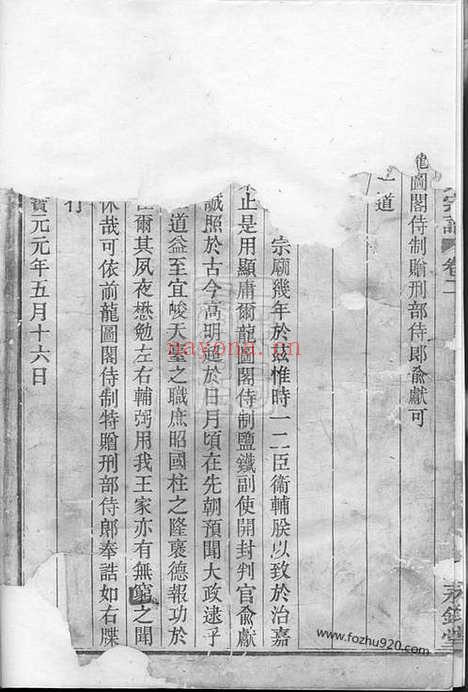 宗譜 卷二
永錫堂
龍圖閣侍制贈刑部侍郎俞獻可
一道
宗廟幾年於茲惟時一二臣衞輔朕以致於治嘉
止是用顯庸爾龍圖閣侍制鹽鐵副使開封判官俞獻
誠照於古今高明超於日月頃在先朝預聞大政逮予
道益至宜峻天臺之職庶昭國柱之隆襃德報功於
爾其夙夜懋勉左右輔弼用我王家亦有無窮之聞
休哉可依前龍圖閣侍制特贈刑部侍郎奉誥如右牒
行
寶元元年五月十六日
nayona.cn
www.fozhu920.com